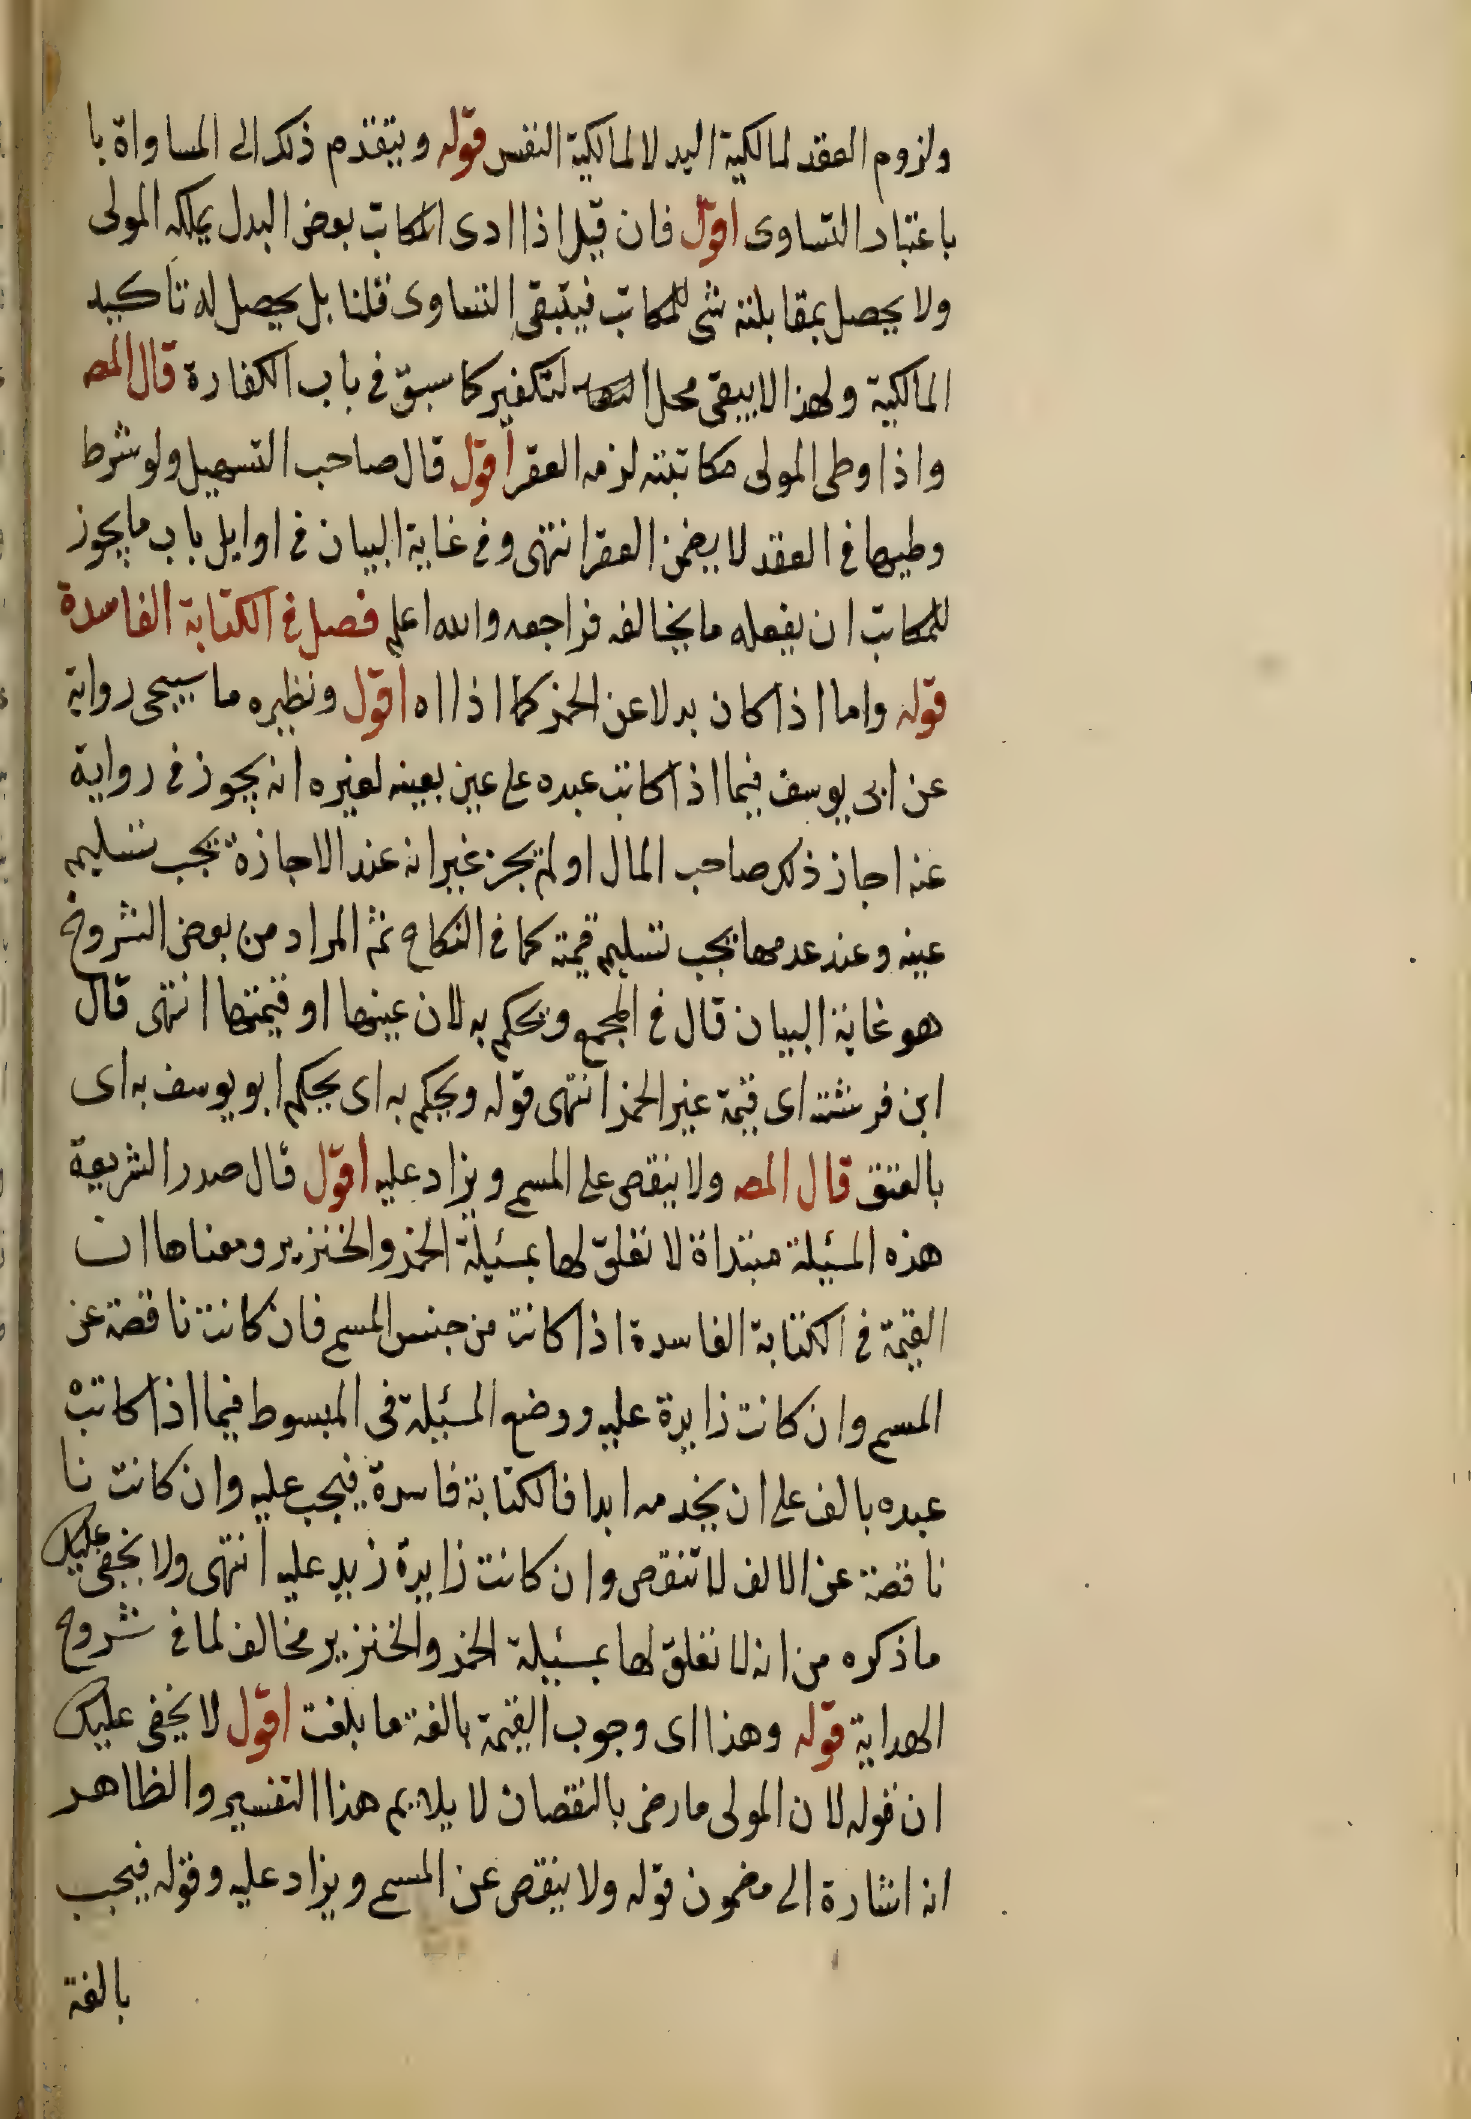 ولزوم العقد لمالكية اليد لا لمالكية النفس قوله وبتقدم ذلك الى المساواة با
باعتبار التساوى اقول فان قيل اذا ادى المكاتب بعض البدل يملكه المولى
ولا يحصل بمقابلته شئ للمكاتب فيتبقى التساوى قلنا بل يحصل له تأكيد
المالكية ولهذا لا يبقى محل لتكفير كما سبق فى باب الكفارة قال المص
واذا وطى المولى مكاتبته لزمه العقر اقول قال صاحب التسهيل ولو شرط
وطيها فى العقد لا يضمن العقر انتهى وفى غاية البيان فى اوايل باب ما يجوز
للمكاتب ان يفعله ما يخالفه فراجعه والله اعلم فصل فى الكتابة الفاسدة
قوله واما اذا كان بدلا عن الخمر كما اذا اه اقول ونظيره ما سيجى رواية
عن ابى يوسف فيما اذا كاتب عبده على عين بعينه لغيره انه يجوز فى رواية
عنه اجاز ذلك صاحب المال او لم يجز غير انه عند الاجازة يجب تسليم
عينه وعند عدمها يجب تسليم قيمته كما فى النكاح ثم المراد من بعض الشروح
هو غاية البيان قال فى المجمع ونحكم به لان عينها او قيمتها انتهى قال
ابن فرشته اى قيمة غير الخمر انتهى قوله ويحكم به اى يحكم ابو يوسف به اى
بالعتق قال المص ولا ينقص على المسم ويزاد عليه اقول قال صدر الشريعة
هذه المسئلة مبتداة لا تعلق لها بمسئلة الخمر والخنزير ومعناها ان
القيمة فى الكتابة الفاسدة اذا كانت من جنس المسم فان كانت ناقصة عن
المسم وان كانت زايدة عليه ووضع المسئلة فى المبسوط فيما اذا كاتب
عبده بالف على ان يخدمه ابدا فالكتابة فاسدة فيجب عليه وان كانت نا
ناقصة عن الالف لا تنقص وان كانت زايدة زيد عليه انتهى ولا يخفى عليك
ما ذكره من انه لا تعلق لها بمسئلة الخمر والخنزير مخالف لما فى شروح
الهداية قوله وهذا اى وجوب القيمة بالغة ما بلغت اقول لا يخفى عليك
ان قوله لان المولى ما رضى بالنقصان لا يلايم هذا التفسير والظاهر
انه اشارة الى مضمون قوله ولا ينقص عن المسم ويزاد عليه وقوله فيجب
بالغة